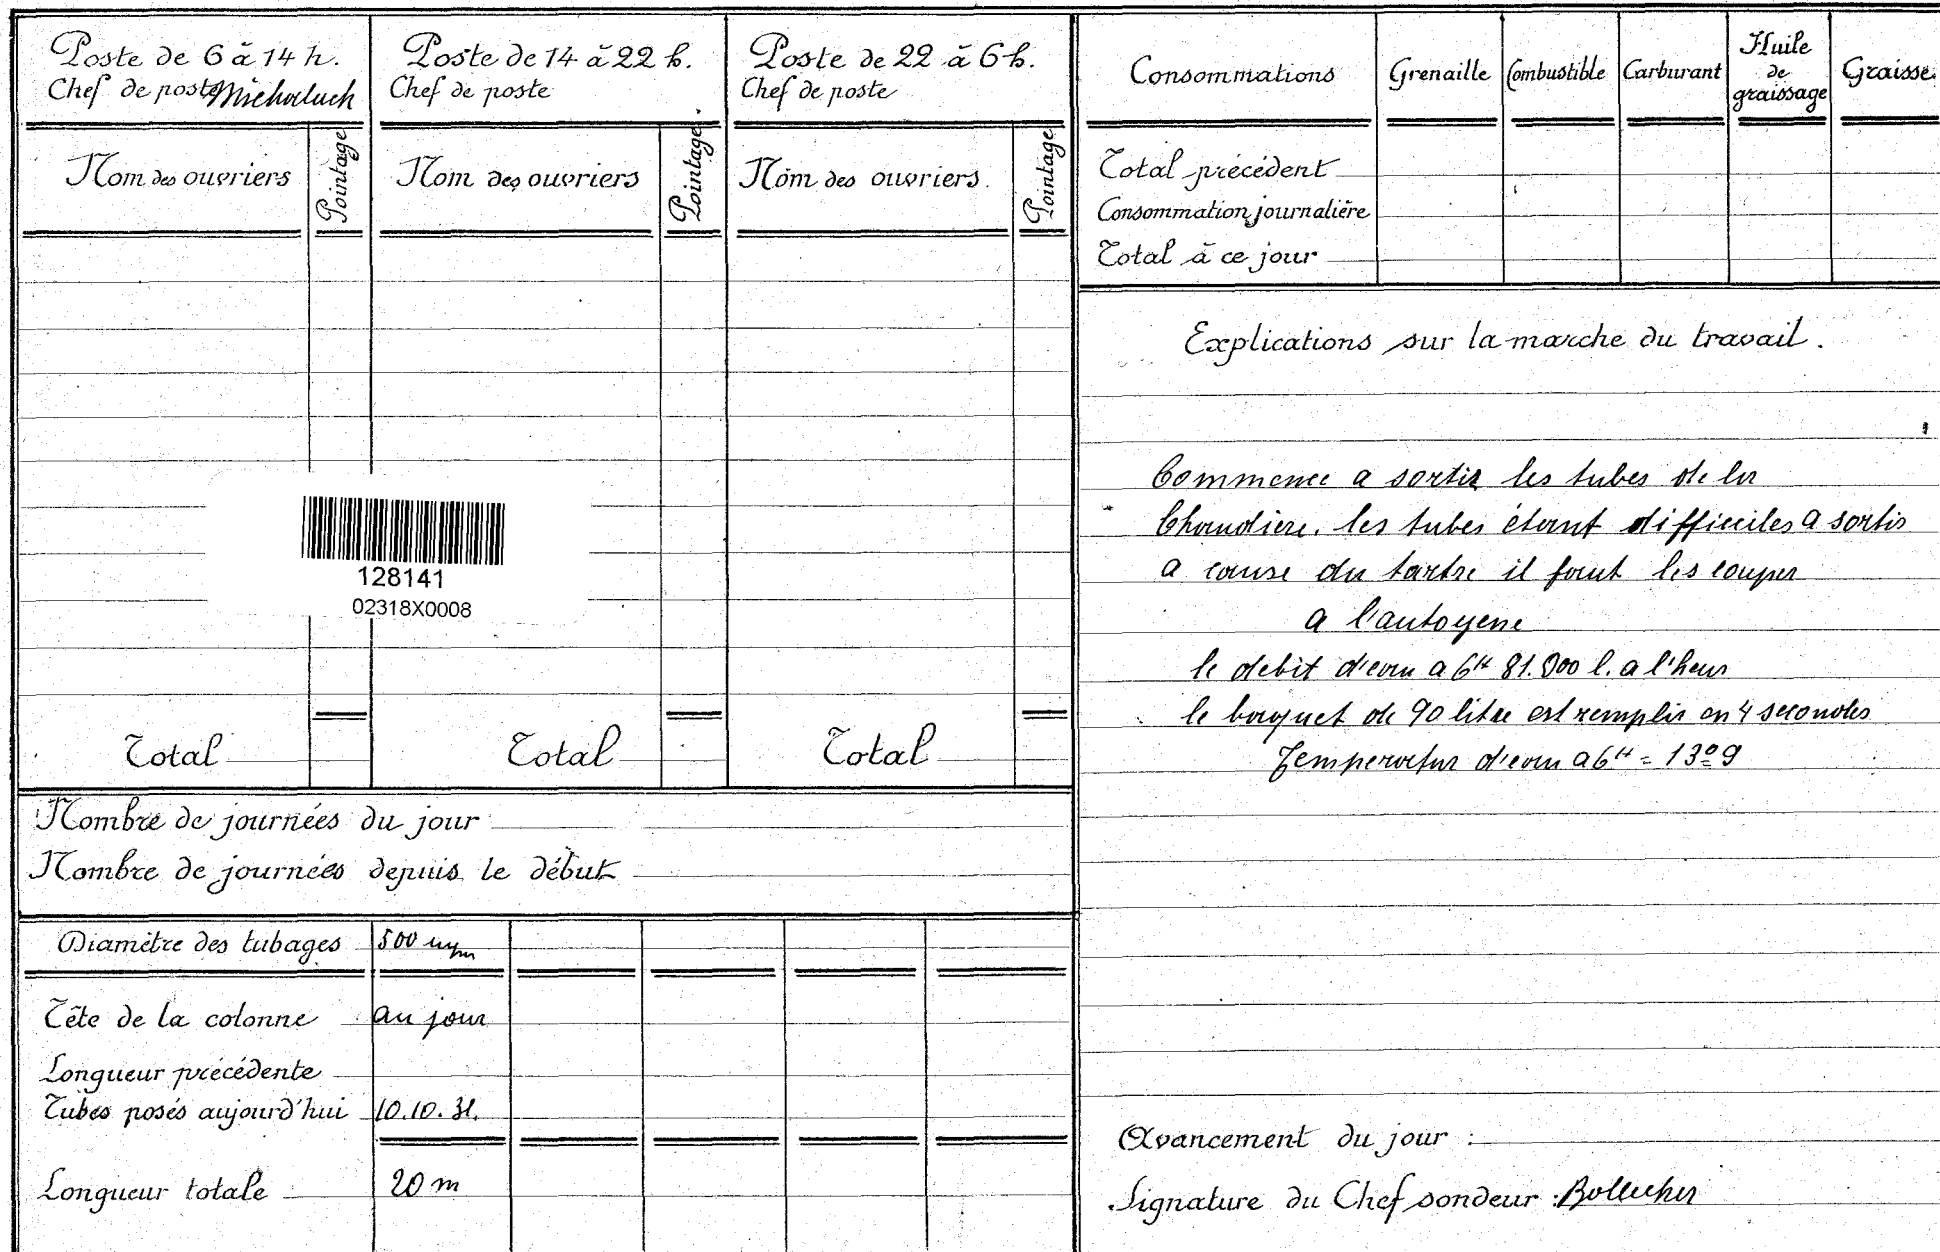 Poste de 6 à 14 h.
Chef de poste Michaluch
Poste de 14 à 22 h.
Chef de poste
Poste de 22 à 6 h.
Chef de poste
Nom des ouvriers
Pointage
Nom des ouvriers
Pointage.
Nom des ouvriers.
Pointage
128141
02318X0008
Total
Total
Total
Nombre de journées du jour
Nombre de journées depuis le début
Diamètre des tubages 500 m/m
Tête de la colonne au jour
Longueur précédente
Tubes posés aujourd'hui 10.10.31.
Longueur totale 20 m
Consommations
Grenaille
Combustible
Carburant
Huile
de
graissage
Graisse
Total précédent
Consommation journalière
Total à ce jour
Explications sur la marche du travail.
Commence a sortir les tubes de la
Chaudiere. les tubes étant difficiles a sortir
a cause du tartre il faut les couper
a l'autogene
le debit d'eau a 6H 81.000 l. a l'heur
le baquet de 90 litre est remplis en 4 secondes
Temperatur d'eau a 6H = 13º9
Avancement du jour :
Signature du Chef sondeur :